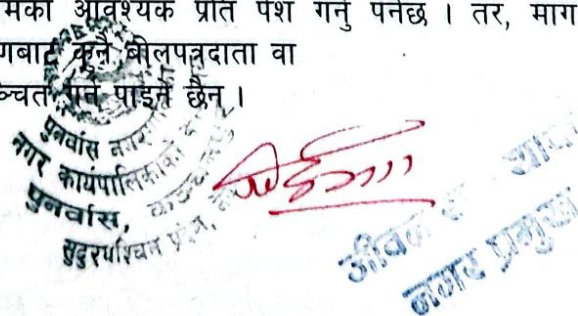 मको आवश्यक प्रति पेश गर्नु पर्नेछ । तर, माग
गबाट कुनै बोलपत्रदाता वा
ञ्चित गर्न पाइने छैन ।
पुनर्वास
नगर कार्यपालिकाको
पुनर्वास,
सुदुरपश्चिम प्रदेश,
नगर प्रमुख